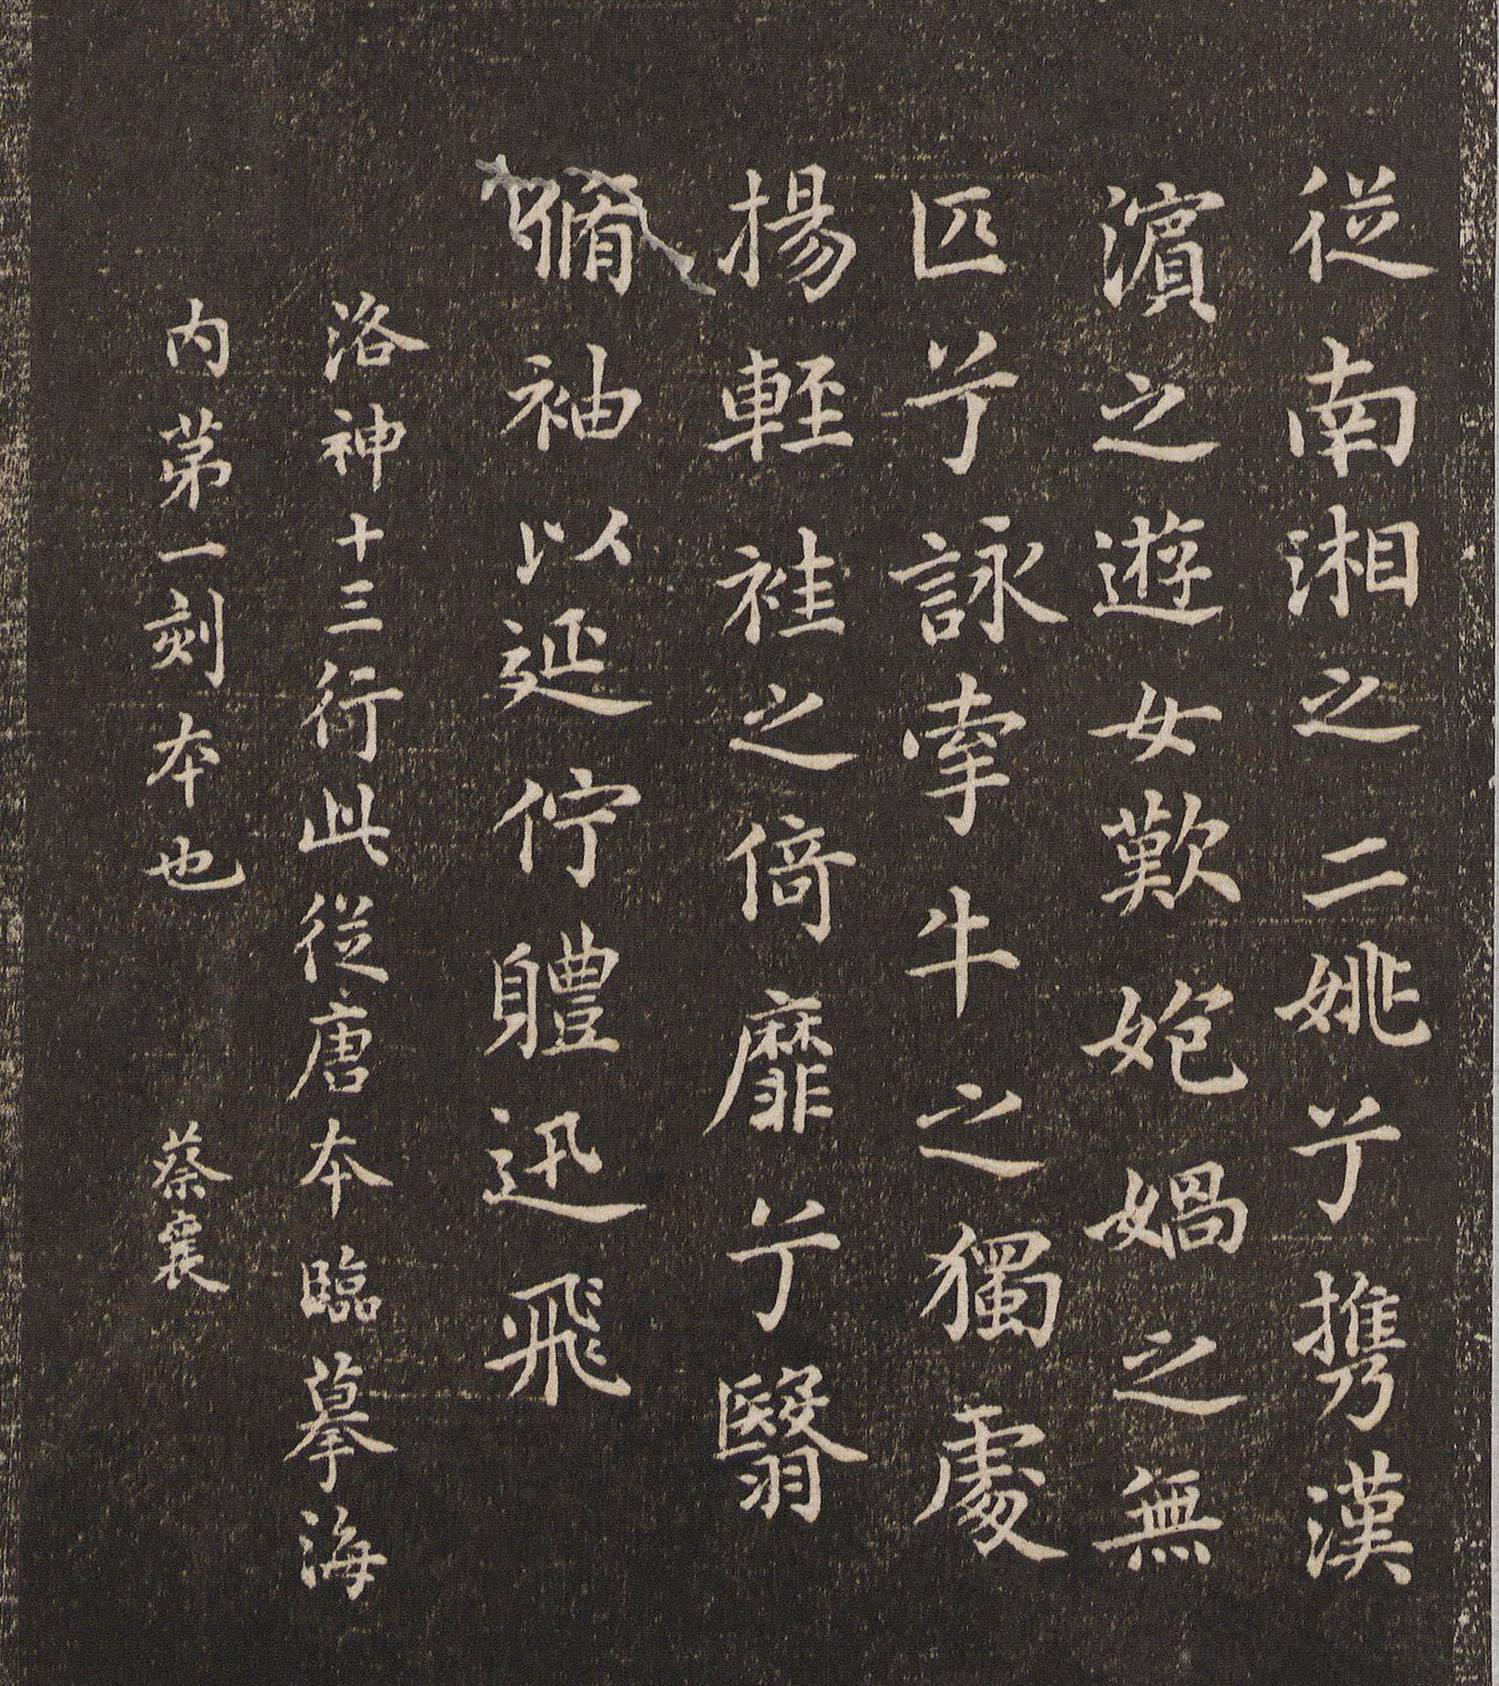 従南湘之二姚兮携漢
濵之遊女歎姫媧之無
匹兮詠牽牛之獨處
揚軽袿之倚靡兮翳
脩袖以延佇軆迅飛
洛神十三行此従唐本臨摹海
内第一刻本也 蔡襄